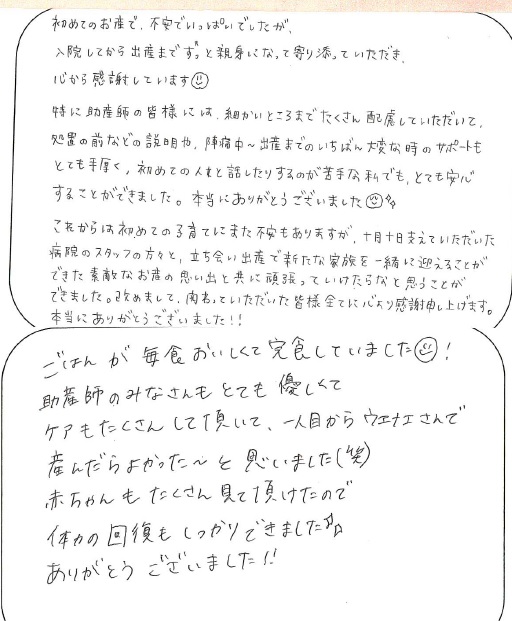 初めてのお産で、不安でいっぱいでしたが、
入院してから出産までずっと親身になって寄り添っていただき、
心から感謝しています☺
特に助産師の皆様には、細かいところまでたくさん配慮していただいて、
処置の前などの説明や、陣痛中~出産までのいちばん大変な時のサポートも
とても手厚く、初めての人と話したりするのが苦手な私でも、とても安心
することができました。本当にありがとうございました☺
これからは初めての子育てにまた不安もありますが、十月十日支えていただいた
病院のスタッフの方々と、立ち会い出産で新たな家族を一緒に迎えることが
できた素敵なお産の思い出と共に頑張っていけたらなと思うことが
できました。改めまして、関わっていただいた皆様全てに心より感謝申し上げます。
本当にありがとうございました!!
ごはんが毎食おいしくて完食していました☺!
助産師のみなさんもとても優しくて
ケアもたくさんして頂いて、一人目からウエナエさんで
産んだらよかった~と思いました(笑)
赤ちゃんもたくさん見て頂けたので
体力の回復もしっかりできました
ありがとうございました!!